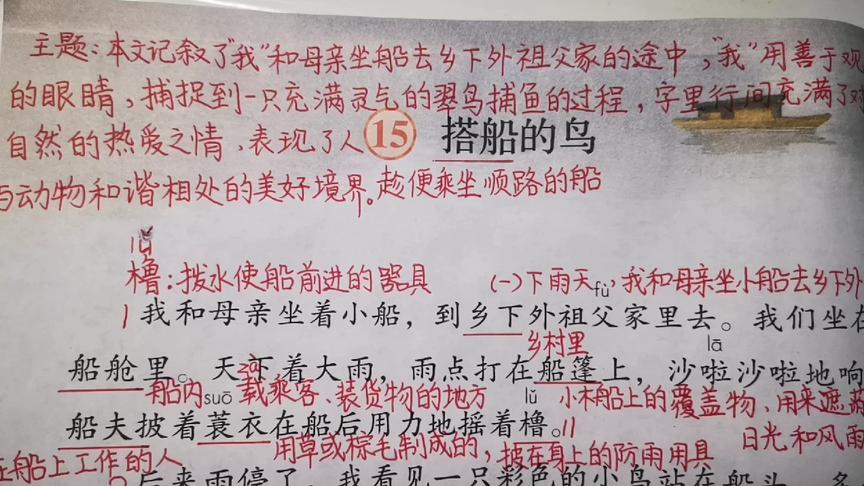 主题:本文记叙了“我”和母亲坐船去乡下外祖父家的途中,“我”用善于观
的眼睛,捕捉到一只充满灵气的翠鸟捕鱼的过程,字里行间充满了对
自然的热爱之情,表现了人
15 搭船的鸟
与动物和谐相处的美好境界。趁便乘坐顺路的船
橹:拨水使船前进的器具
(一)下雨天,我和母亲坐小船去乡下外
fù
1 我和母亲坐着小船,到乡下外祖父家里去。我们坐在
乡村里
lā
船舱里。天下着大雨,雨点打在船篷上,沙啦沙啦地响
船内载乘客、装货物的地方
小木船上的覆盖物、用来遮蔽
suō
lǔ
船夫披着蓑衣在船后用力地摇着橹。
日光和风雨
在船上工作的人
用草或棕毛制成的,披在身上的防雨用具
后来雨停了。我看见一只彩色的小鸟站在船头,多